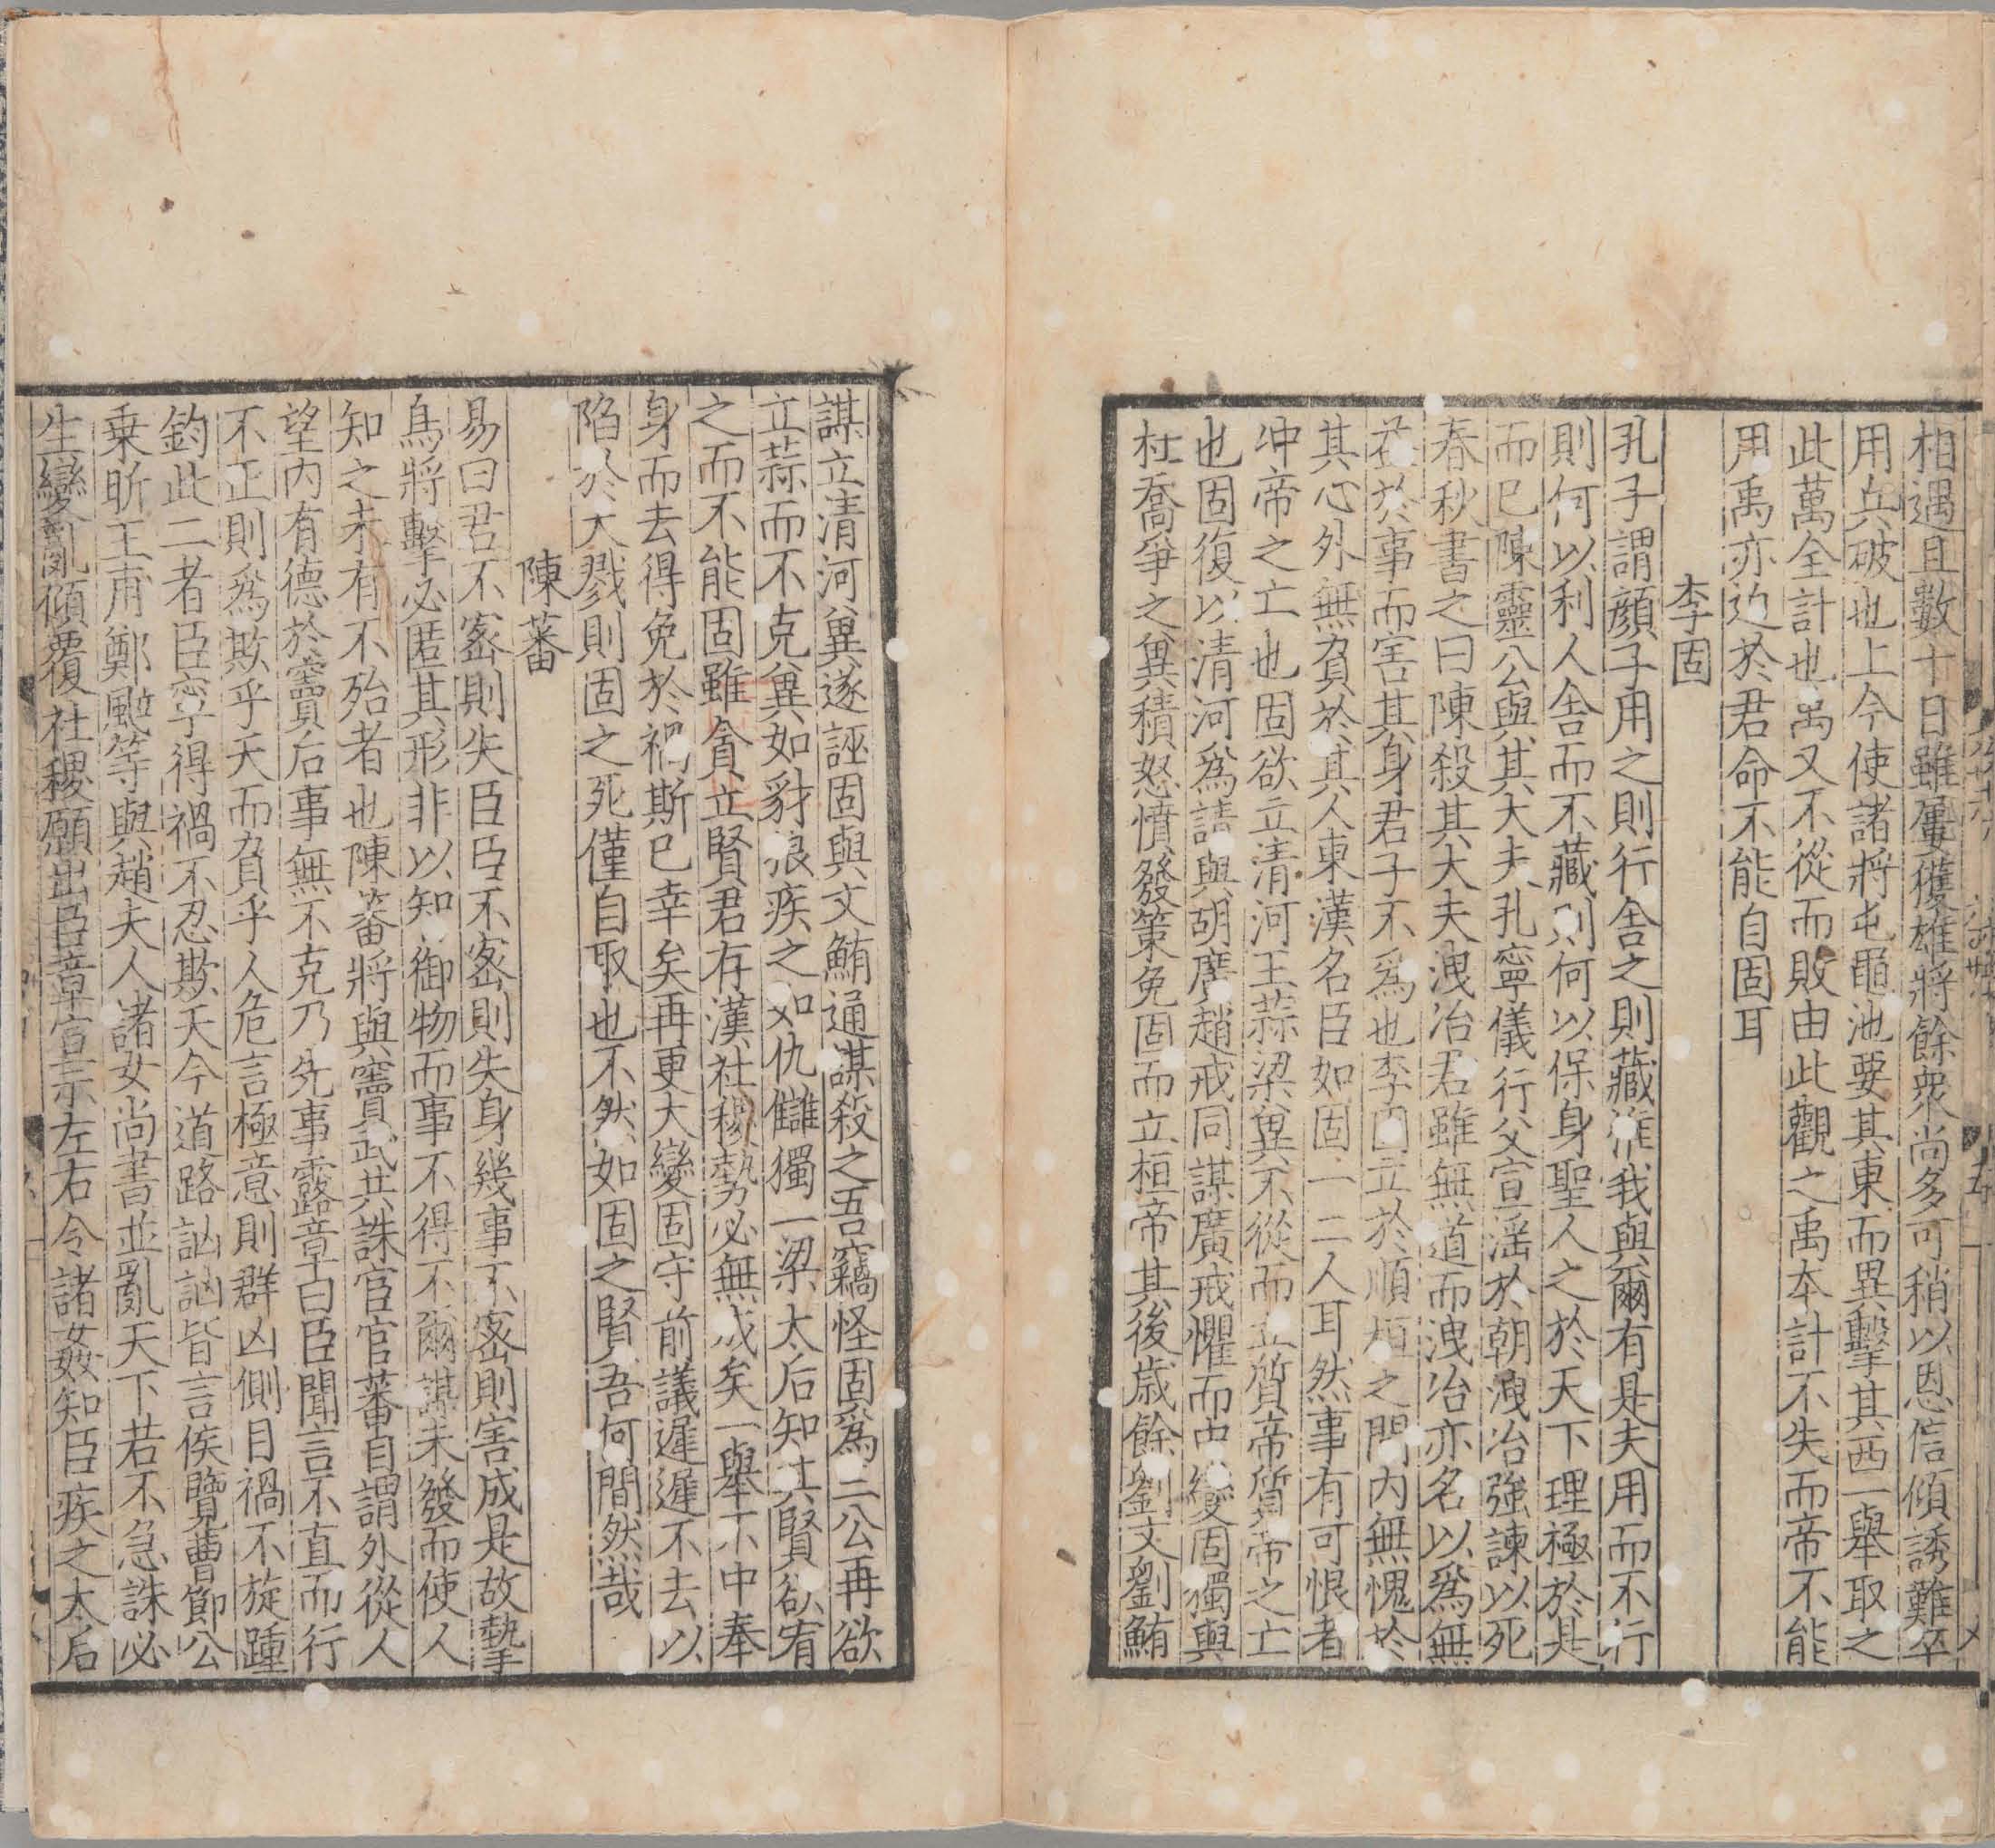 相遇且數十日雖屢獲雄將餘衆尚多可稍以恩信傾誘難卒
用兵破也上今使諸將屯黽池要其東而異擊其西一舉取之
此萬全計也禹又不從而敗由此觀之禹本計不失而帝不能
用禹亦迫於君命不能自固耳
李固
孔子謂顏子用之則行舍之則藏惟我與爾有是夫用而不行
則何以利人舍而不藏則何以保身聖人之於天下理極於是
而已陳靈公與其大夫孔寧儀行父宣滛於朝洩冶強諫以死
春秋書之曰陳殺其大夫洩冶君雖無道而洩冶亦名以爲無
益於事而害其身君子不爲也李固立於順桓之間内無愧於
其心外無負於其人東漢名臣如固一二人耳然事有可恨者
冲帝之亡也固欲立清河王蒜梁兾不從而立質帝質帝之亡
也固復以清河爲請與胡廣趙戒同謀廣戒懼而中變固獨與
杜喬爭之兾積怒憤發策免固而立桓帝其後歲餘劉文劉鮪
謀立清河兾遂誣固與文鮪通謀殺之吾竊怪固爲三公再欲
立蒜而不克兾如豺狼疾之如仇讎獨一梁太后知其賢欲宥
之而不能固雖貪立賢君存漢社稷勢必無成矣一舉不中奉
身而去得免於禍斯已幸矣再更大變固守前議遲遲不去以
陷於大戮則固之死僅自取也不然如固之賢吾何間然哉
陳蕃
易曰君不宻則失臣臣不宻則失身幾事不宻則害成是故摯
鳥將擊必匿其形非以知御物而事不得不爾謀未發而使人
知之未有不殆者也陳蕃將與竇武共誅宦官蕃自謂外從人
望内有德於竇后事無不克乃先事露章曰臣聞言不直而行
不正則爲欺乎天而負乎人危言極意則群凶側目禍不旋踵
鈞此二者臣寧得禍不忍欺天今道路訩訩皆言侯覽曹節公
乗昕王甫鄭颯等與趙夫人諸女尚書並亂天下若不急誅必
生變亂傾覆社稷願出臣章宣示左右令諸姦知臣疾之太后